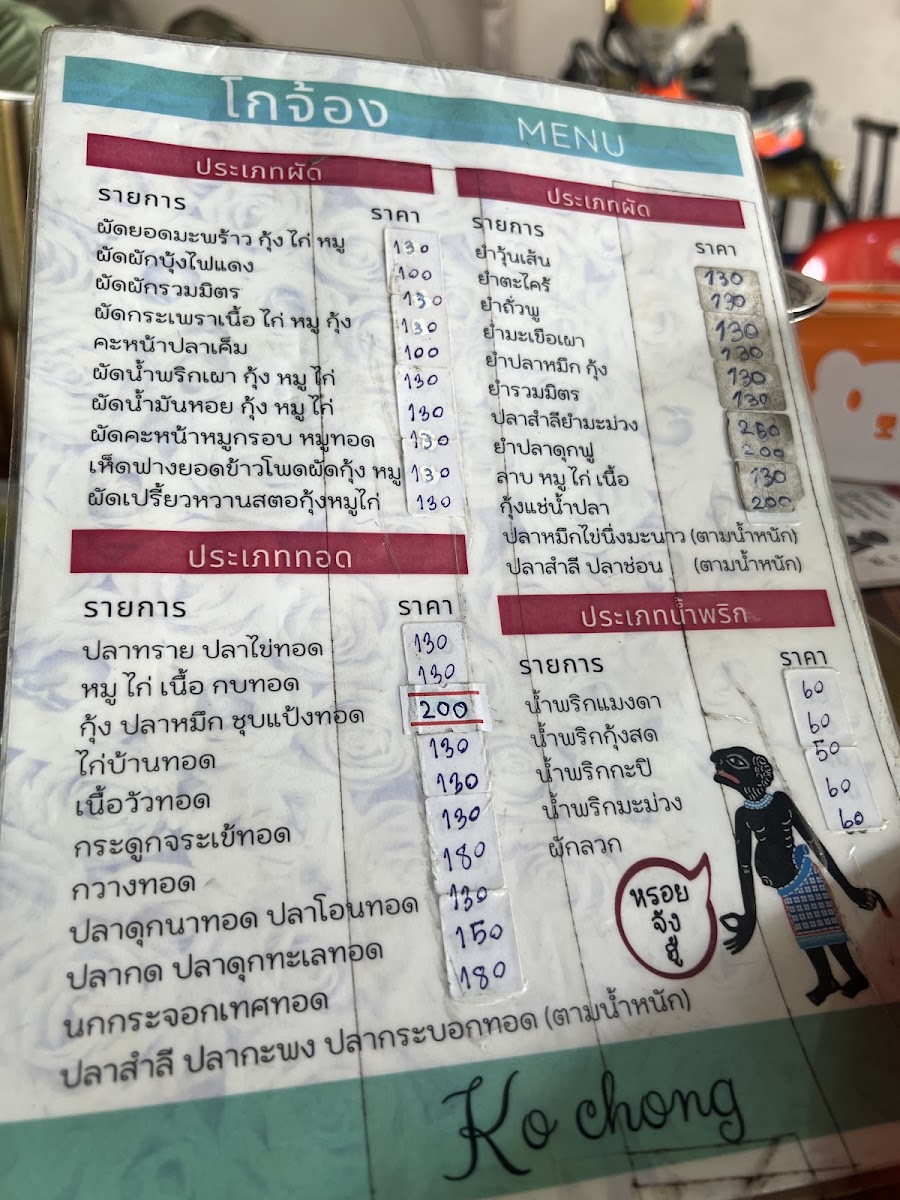 โกจ้อง MENU
ประเภทผัด
รายการ ราคา
ผัดยอดมะพร้าว กุ้ง ไก่ หมู 130
ผัดผักบุ้งไฟแดง 100
ผัดผักรวมมิตร 130
ผัดกระเพราเนื้อ ไก่ หมู กุ้ง 130
คะหน้าปลาเค็ม 100
ผัดน้ำพริกเผา กุ้ง หมู ไก่ 130
ผัดน้ำมันหอย กุ้ง หมู ไก่ 130
ผัดคะหน้าหมูกรอบ หมูทอด 130
เห็ดฟางยอดข้าวโพดผัดกุ้ง หมู 130
ผัดเปรี้ยวหวานสตอกุ้งหมูไก่ 130
ประเภททอด
รายการ ราคา
ปลาทราย ปลาไข่ทอด 130
หมู ไก่ เนื้อ กบทอด 130
กุ้ง ปลาหมึก ชุบแป้งทอด 200
ไก่บ้านทอด 130
เนื้อวัวทอด 130
กระดูกจระเข้ทอด 130
กวางทอด 180
ปลาดุกนาทอด ปลาโอนทอด 130
ปลากด ปลาดุกทะเลทอด 150
นกกระจอกเทศทอด 180
ปลาสำลี ปลากะพง ปลากระบอกทอด (ตามน้ำหนัก)
ประเภทผัด
รายการ ราคา
ยำวุ้นเส้น 130
ยำตะไคร้ 130
ยำถั่วพู 130
ยำมะเขือเผา 130
ยำปลาหมึก กุ้ง 130
ยำรวมมิตร 130
ปลาสำลียำมะม่วง 250
ยำปลาดุกฟู 200
ลาบ หมู ไก่ เนื้อ 130
กุ้งแช่น้ำปลา 200
ปลาหมึกไข่นึ่งมะนาว (ตามน้ำหนัก)
ปลาสำลี ปลาช่อน (ตามน้ำหนัก)
ประเภทน้ำพริก
รายการ ราคา
น้ำพริกแมงดา 60
น้ำพริกกุ้งสด 60
น้ำพริกกะปิ 50
น้ำพริกมะม่วง 60
ผักลวก 60
หรอย
จัง
ฮู้
Ko chong